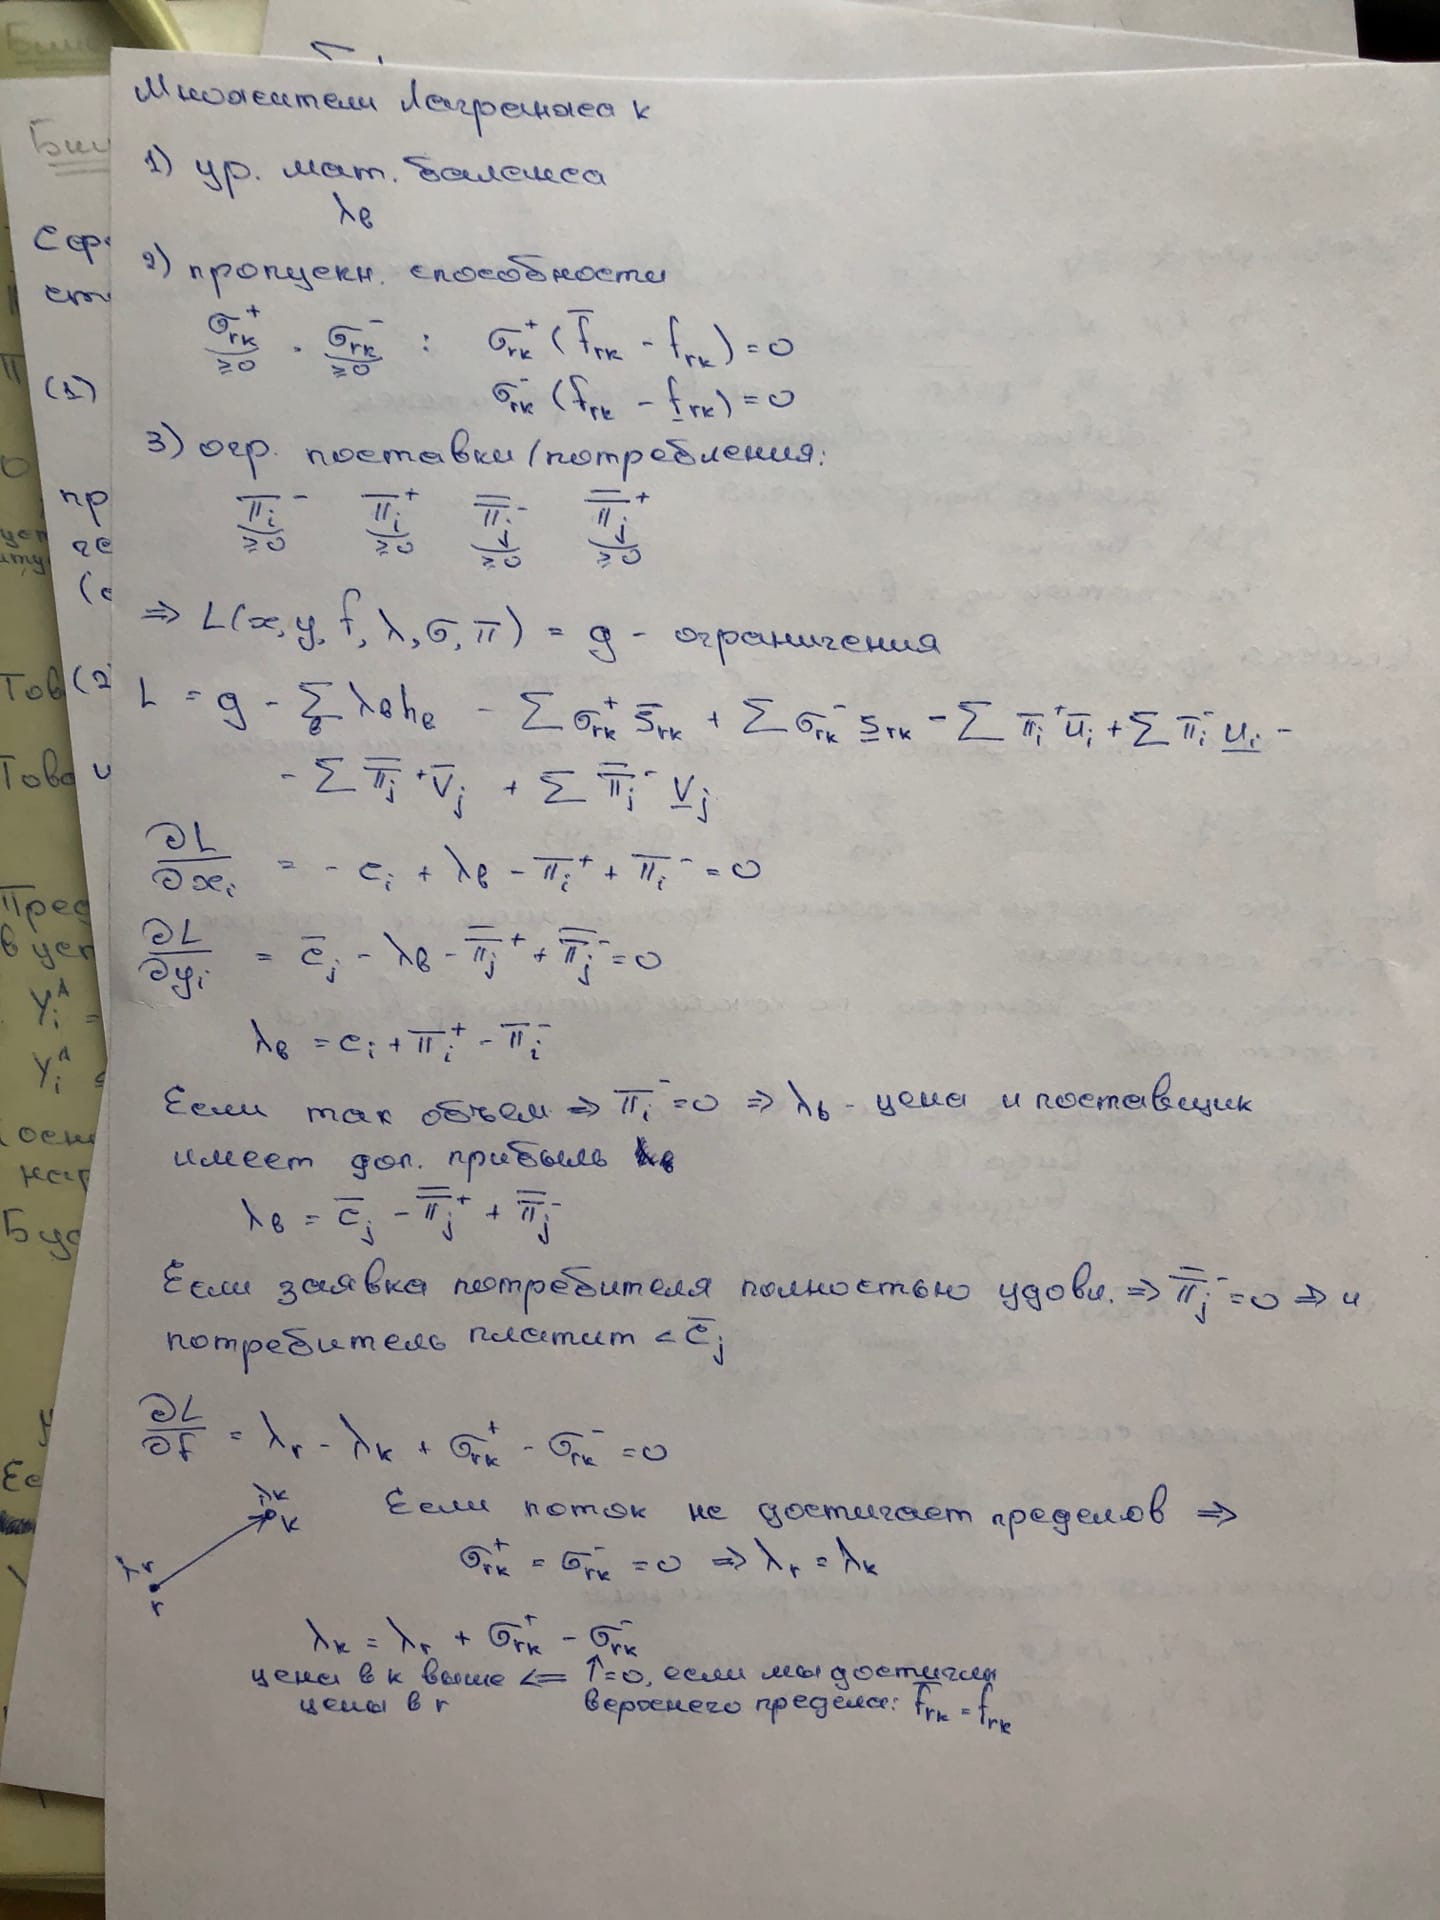 Множители Лагранжа к
1) ур. мат. баланса
λ_в
2) пропускн. способности
σ_rk^+ ≥0 · σ_rk^- ≥0 : σ_rk^+ (f̄_rk - f_rk) = 0
σ_rk^- (f_rk - f̲_rk) = 0
3) огр. поставки/потребления:
π̄_i^- ≥0 π̄_i^+ ≥0 π̿_j^- ≥0 π̿_j^+ ≥0
⇒ L(x, y, f, λ, σ, π) = g - ограничения
L = g - ∑_в λ_в h_в - ∑ σ_rk^+ s̄_rk + ∑ σ_rk^- s̲_rk - ∑ π̄_i^+ ū_i + ∑ π̄_i^- u̲_i -
- ∑ π̿_j^+ v̄_j + ∑ π̿_j^- v̲_j
∂L/∂x_i = - c_i + λ_в - π̄_i^+ + π̄_i^- = 0
∂L/∂y_i = c̄_j - λ_в - π̿_j^+ + π̿_j^- = 0
λ_в = c_i + π̄_i^+ - π̄_i^-
Если так объем ⇒ π̄_i^- = 0 ⇒ λ_в - цена и поставщик
имеет доп. прибыль
λ_в = c̄_j - π̿_j^+ + π̿_j^-
Если заявка потребителя полностью удовл. ⇒ π̿_j^- = 0 ⇒ и
потребитель платит < c̄_j
∂L/∂f = λ_r - λ_k + σ_rk^+ - σ_rk^- = 0
λ_k
k
Если поток не достигает пределов ⇒
σ_rk^+ = σ_rk^- = 0 ⇒ λ_r = λ_k
λ_r
r
λ_k = λ_r + σ_rk^+ - σ_rk^-
цена в k выше ⇐ ↑=0, если мы достигли
цены в r верхнего предела: f̄_rk = f_rk